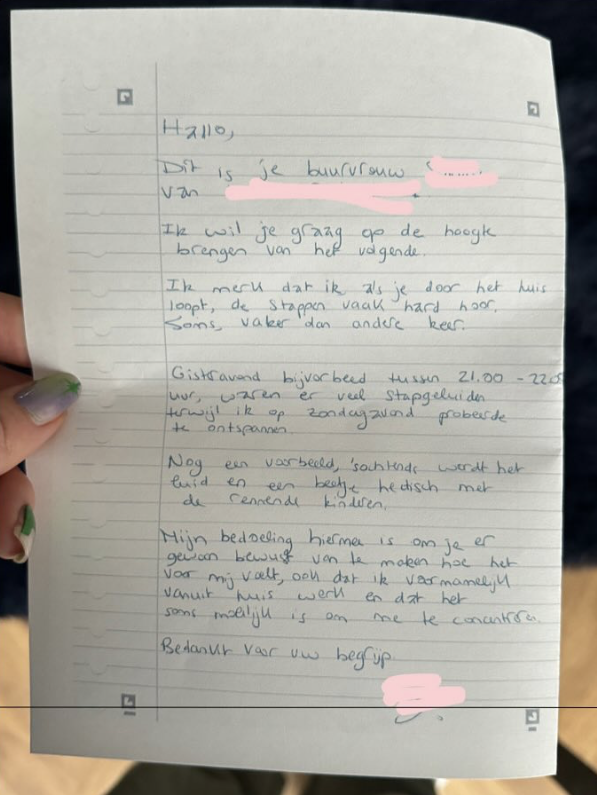 Hallo,
Dit is je buurvrouw
van
Ik wil je graag op de hoogte
brengen van het volgende.
Ik merk dat ik als je door het huis
loopt, de stappen vaak hard hoor.
Soms, vaker dan andere keer.
Gisteravond bijvorbeed tussen 21.00 - 22.00
uur, waren er veel stapgeluiden
terwijl ik op zondagavond probeerde
te ontspannen.
Nog een voorbeeld, 'sochtends wordt het
luid en een beetje hedisch met
de rennende kinderen.
Mijn bedoeling hiermee is om je er
gewoon bewust van te maken hoe het
voor mij voelt, ook dat ik voornamelijk
vanuit huis werk en dat het
soms moeilijk is om me te concentreren.
Bedankt voor uw begrip.